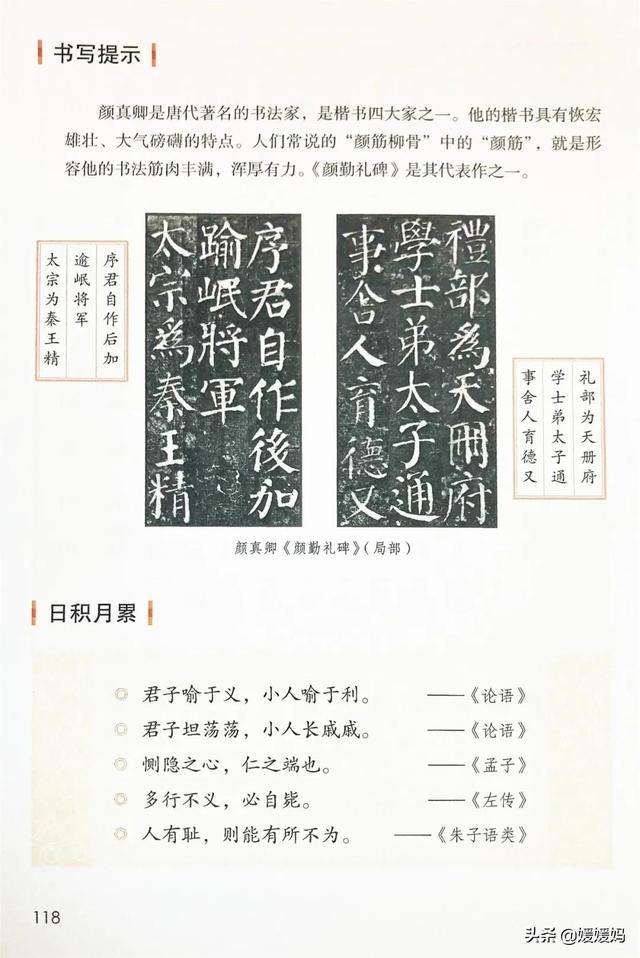 书写提示
颜真卿是唐代著名的书法家，是楷书四大家之一。他的楷书具有恢宏
雄壮、大气磅礴的特点。人们常说的“颜筋柳骨”中的“颜筋”，就是形
容他的书法筋肉丰满，浑厚有力。《颜勤礼碑》是其代表作之一。
序君自作后加
逾岷将军
太宗为秦王精
序君自作後加
踰岷將軍
太宗爲秦王精
禮部爲天冊府
學士弟太子通
事舍人育德又
礼部为天册府
学士弟太子通
事舍人育德又
颜真卿《颜勤礼碑》（局部）
日积月累
君子喻于义，小人喻于利。 ——《论语》
君子坦荡荡，小人长戚戚。 ——《论语》
恻隐之心，仁之端也。 ——《孟子》
多行不义，必自毙。 ——《左传》
人有耻，则能有所不为。 ——《朱子语类》
118
头条 @媛媛妈